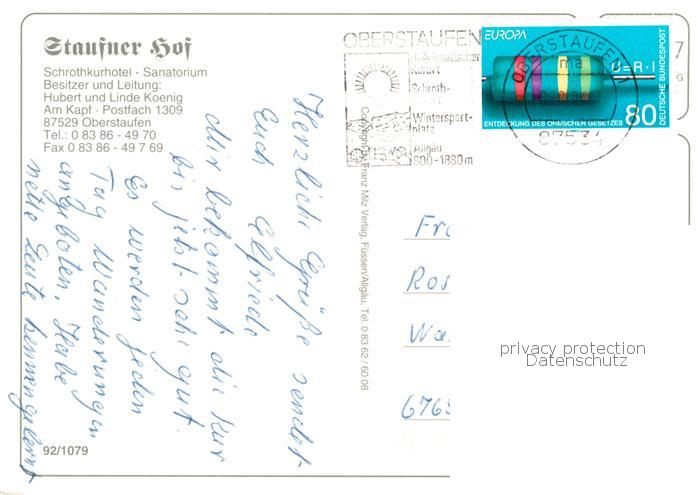 Staufner Hof
Schrothkurhotel - Sanatorium
Besitzer und Leitung:
Hubert und Linde Koenig
Am Kapf · Postfach 1309
87529 Oberstaufen
Tel.: 0 83 86 - 49 70
Fax 0 83 86 - 49 7 69
OBERSTAUFEN
heilklimatischer
Kurort
Schroth-
Wintersport-
platz
Allgäu
800-1880m
EUROPA
U=R·I
DEUTSCHE BUNDESPOST
ENTDECKUNG DES OHMSCHEN GESETZES 80
OBERSTAUFEN
87534
Herzliche Grüße sendet
Euch Elfriede
Mir bekommt die Kur
bis jetzt sehr gut.
Es werden jeden
Tag Wanderungen
angeboten. Habe
nette Leute kennengelernt
Copyright by Franz Milz Verlag, Füssen/Allgäu, Tel. 0 83 62 / 60 08
Fr
Ros
Wa
676
privacy protection
Datenschutz
92/1079